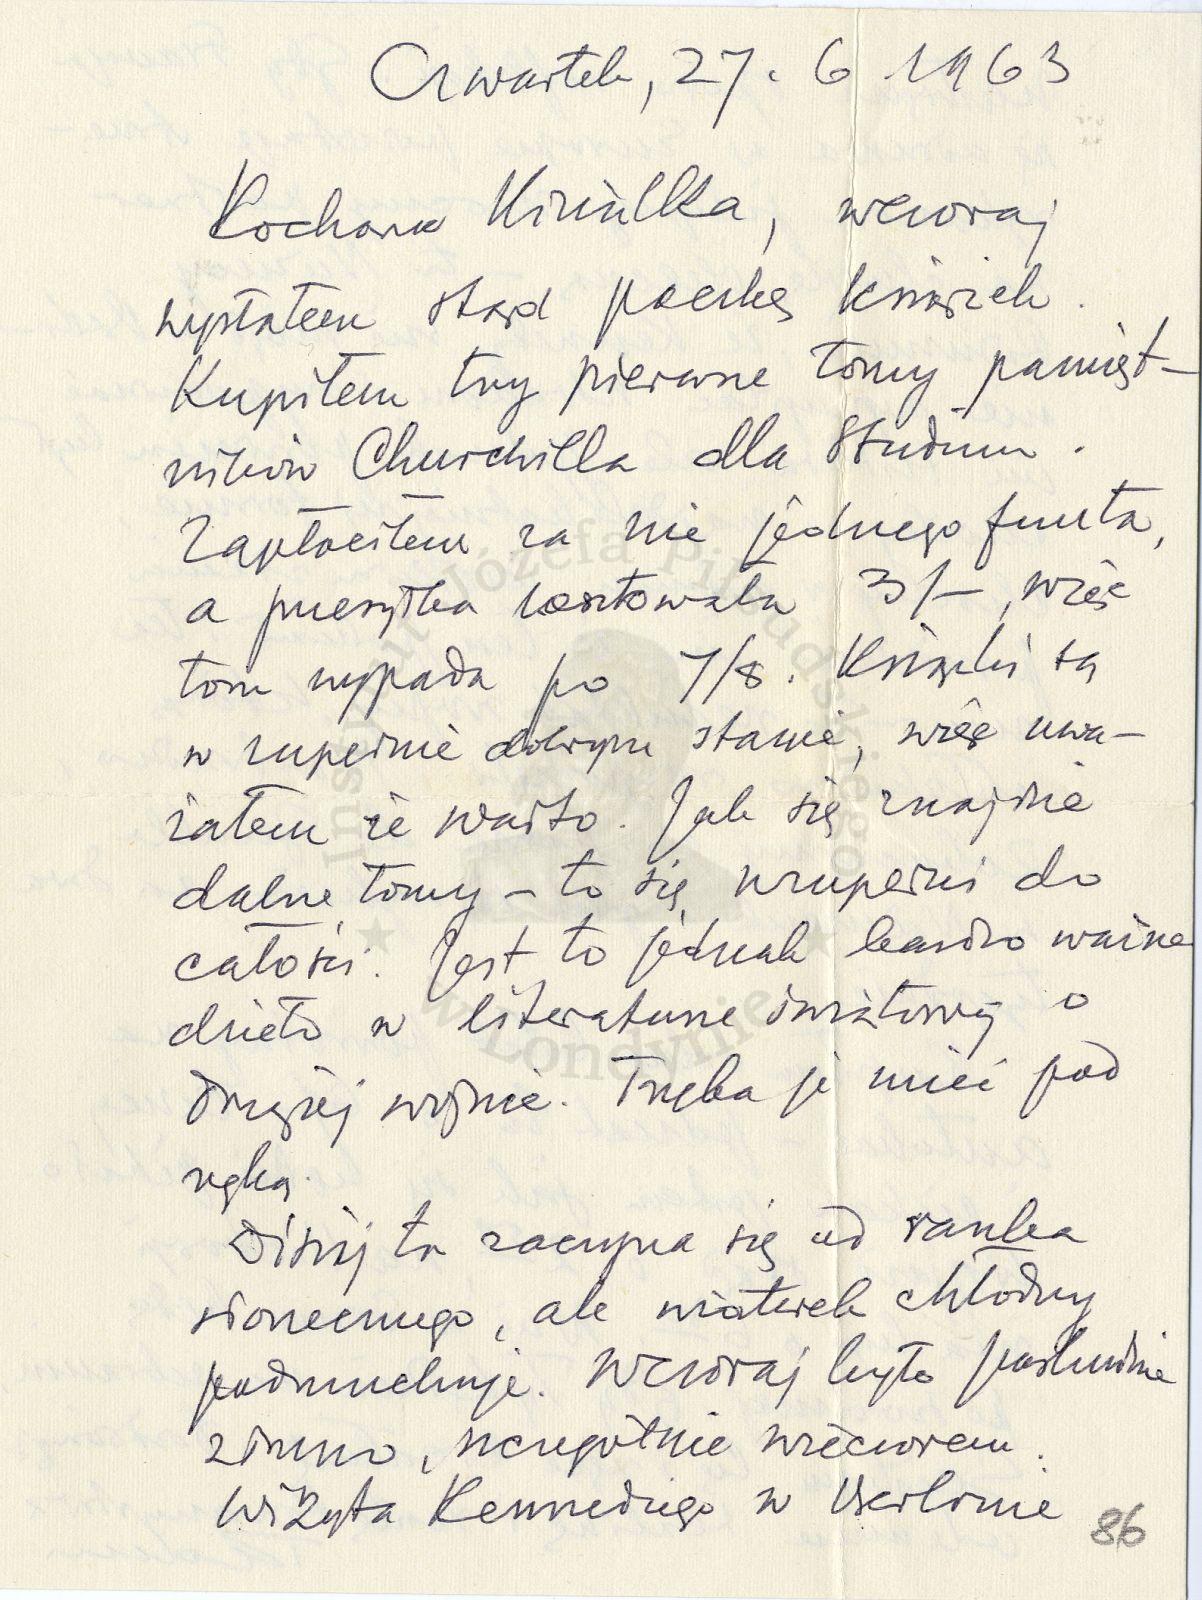 Czwartek, 27. 6 1963
Kochana Kizialka, wczoraj
wysłałem stąd paczkę książek.
Kupiłem trzy pierwsze tomy pamięt-
ników Churchilla dla Studium.
Zapłaciłem za nie jednego funta,
a przesyłka kosztowała 3/-, więc
tom wypada po 7/8. Książki są
w zupełnie dobrym stanie, więc uwa-
żałem że warto. Jak się znajdzie
dalsze tomy - to się uzupełni do
całości. Jest to jednak bardzo ważne
dzieło w literaturze światowej o
drugiej wojnie. Trzeba je mieć pod
ręką.
Dzisiaj tu zaczyna się od ranka
słonecznego, ale wiaterek chłodny
podmuchuje. Wczoraj było paskudnie
zimno, szczególnie wieczorem.
Wizyta Kennediego w Berlinie
86
Instytut Józefa Piłsudskiego
w Londynie